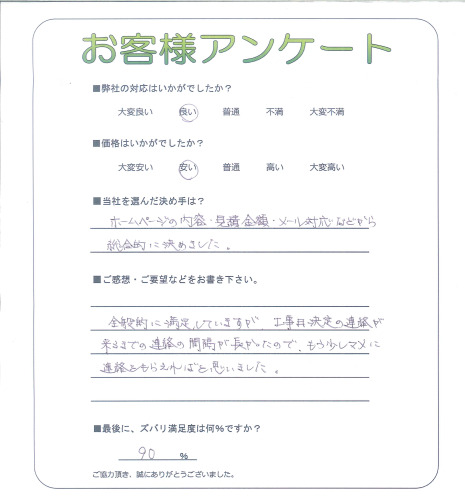 お客様アンケート
■弊社の対応はいかがでしたか？
大変良い 良い 普通 不満 大変不満
■価格はいかがでしたか？
大変安い 安い 普通 高い 大変高い
■当社を選んだ決め手は？
ホームページの内容・見積金額・メール対応などから
総合的に決めました。
■ご感想・ご要望などをお書き下さい。
全般的に満足していますが、工事日決定の連絡が
来るまでの連絡の間隔が長かったので、もう少しマメに
連絡をもらえればと思いました。
■最後に、ズバリ満足度は何％ですか？
90 %
ご協力頂き、誠にありがとうございました。